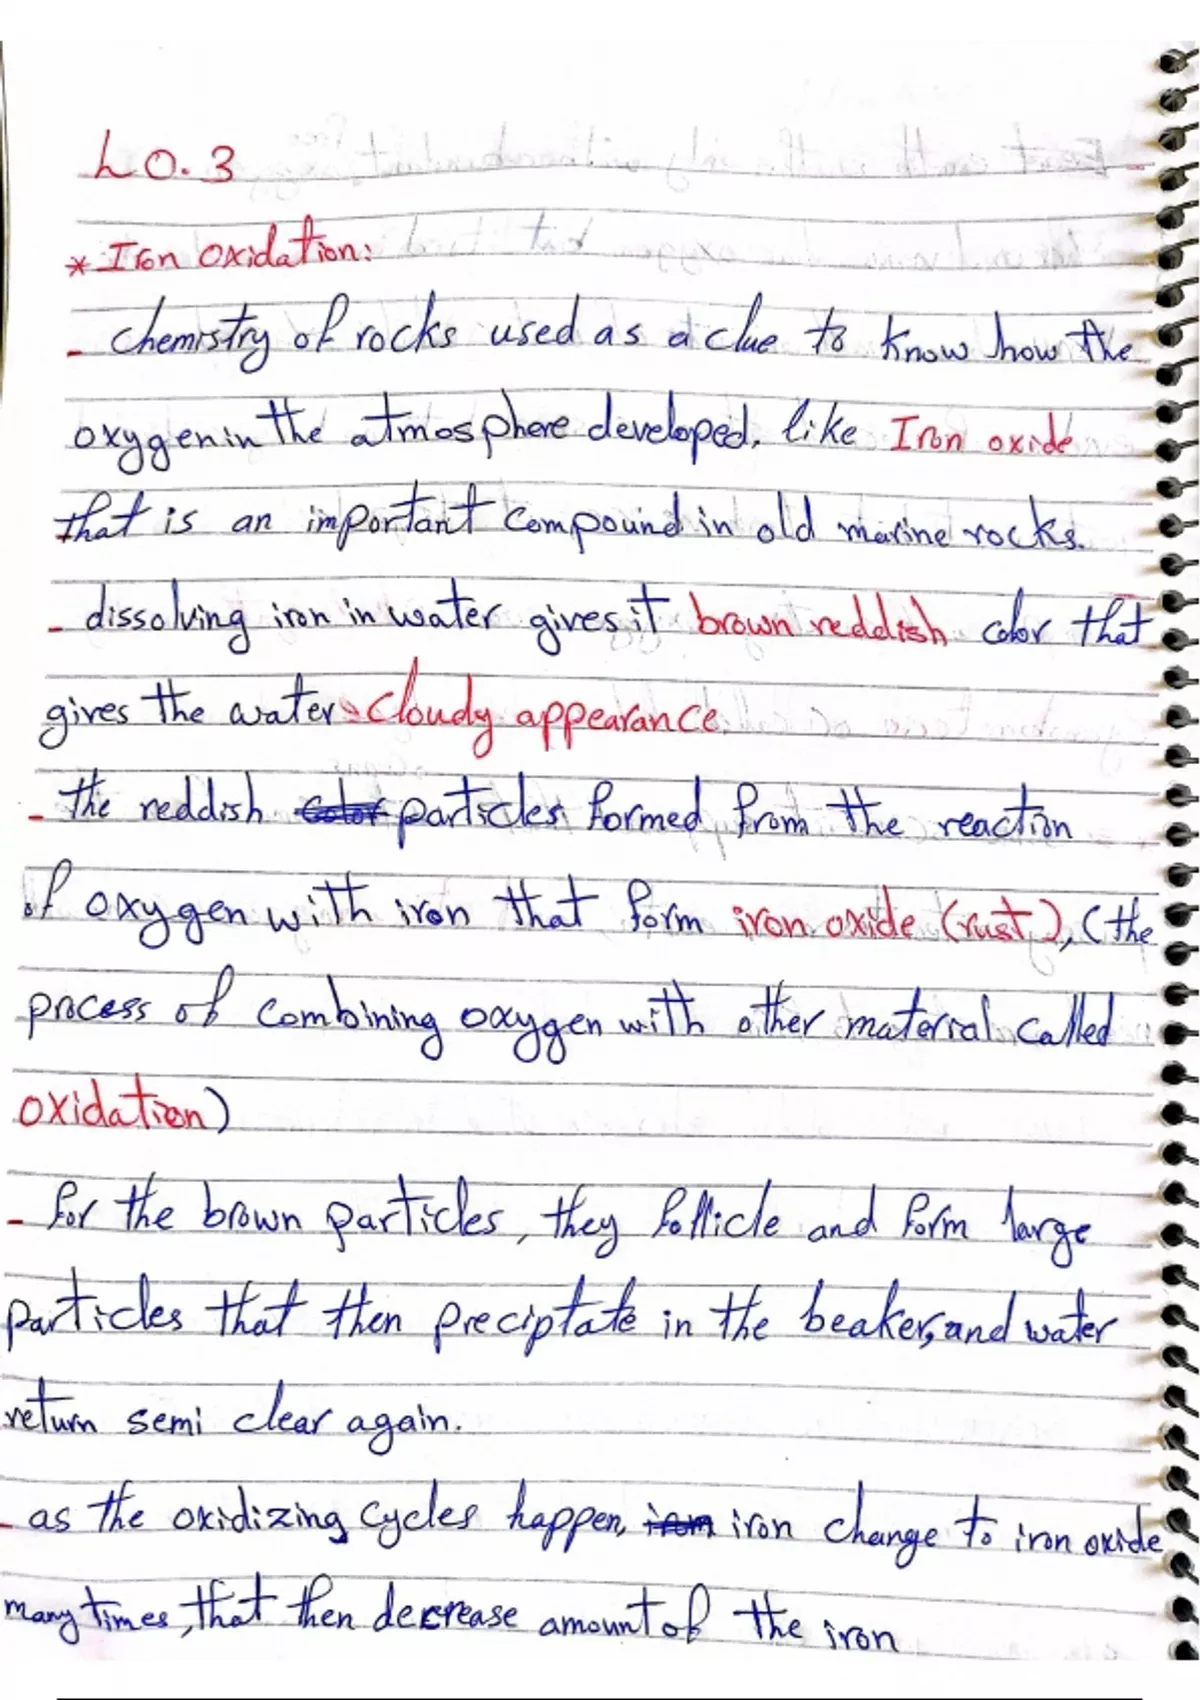 LO.3
* Iron Oxidation:
- chemistry of rocks used as a clue to know how the
oxygen in the atmosphere developed, like Iron oxide
that is an important compound in old marine rocks.
- dissolving iron in water gives it brown reddish color that
gives the water cloudy appearance.
- the reddish color particles formed from the reaction
of oxygen with iron that form iron oxide (rust), (the
process of combining oxygen with other material called
oxidation)
- for the brown particles, they follicle and form large
particles that then preciptate in the beaker, and water
return semi clear again.
- as the oxidizing cycles happen, iron iron change to iron oxide
many times, that then decrease amount of the iron